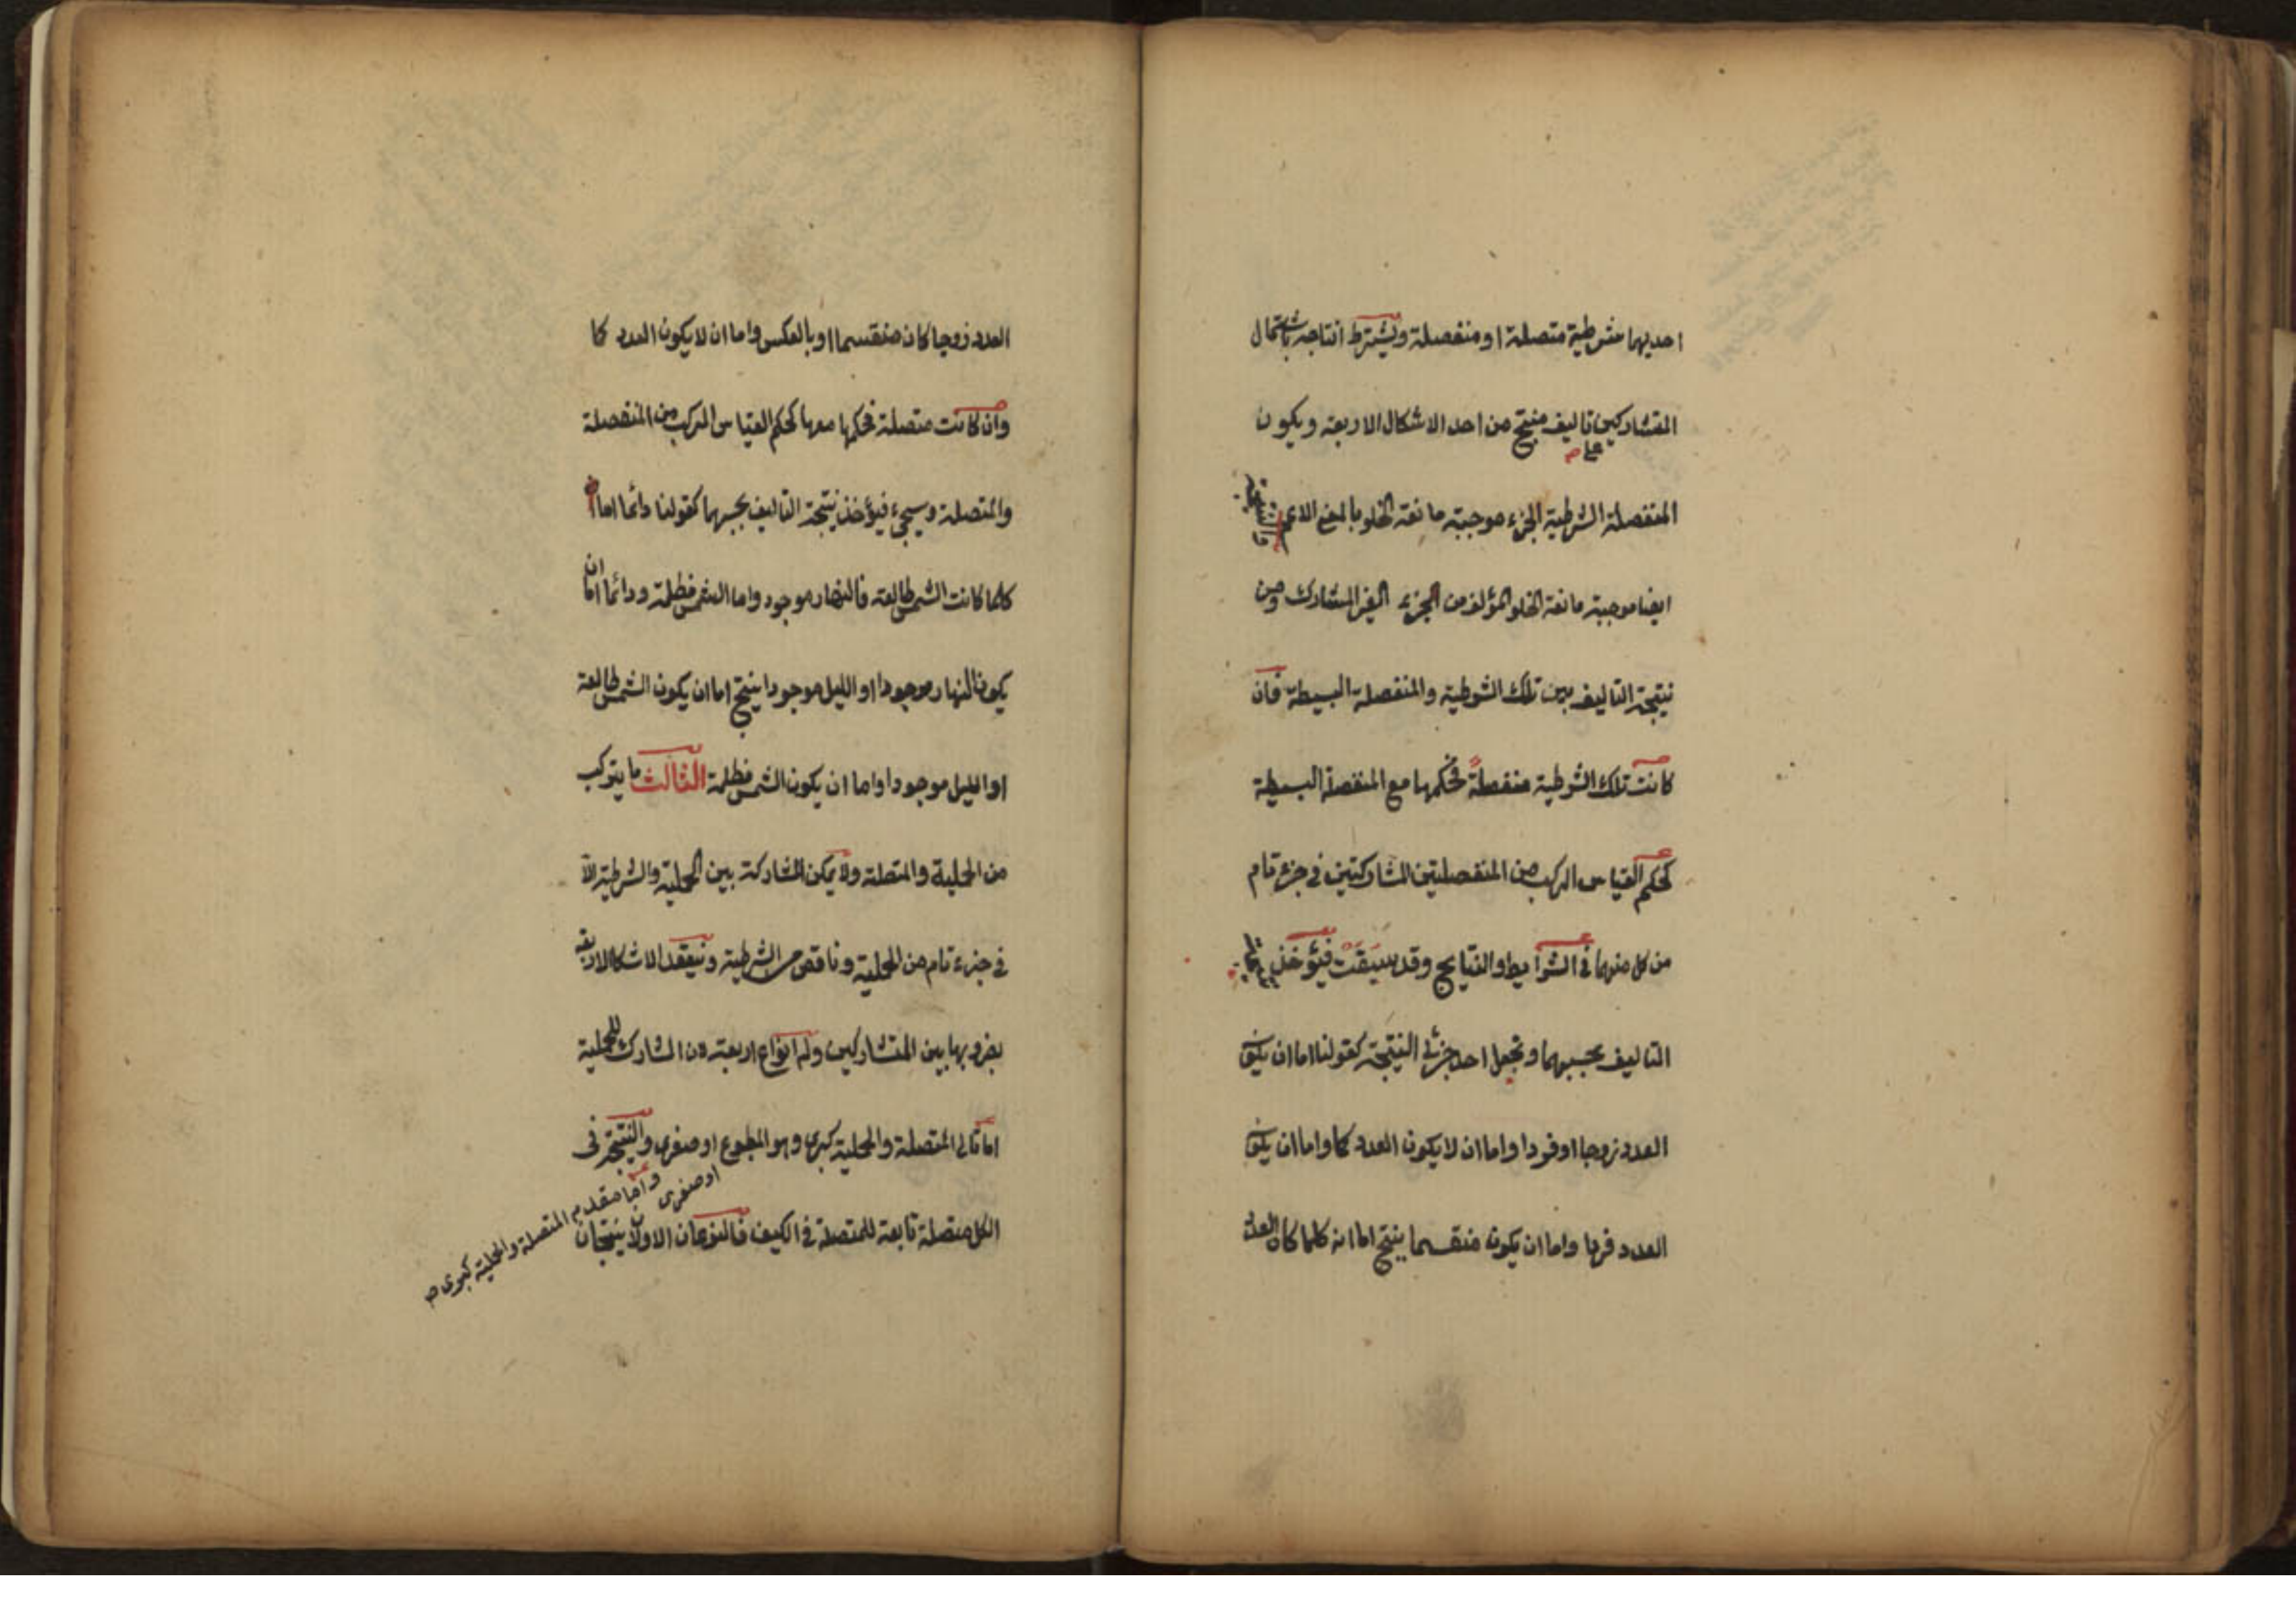 احديهما شرطية متصلة او منفصلة ويشترط انتاجه باشتمال
المتشاركين على تاليف منتج من احد الاشكال الاربعة ويكون
المنفصلة الشرطية الجزء موجبة مانعة الخلو بالمعنى الاعم
ايضا موجبة مانعة الخلو المؤلفة من الجزء الغير المتشارك ومن
نتيجة التاليف بين تلك الشرطية والمنفصلة البسيطة فان
كانت تلك الشرطية منفصلة فحكمها مع المنفصلة البسيطة
كحكم القياس المركب من المنفصلتين المشاركتين فى جزء تام
من كل منهما فى الشرايط والنتايج وقد سبقت فيؤخذ
التاليف بحسبهما وتجعل احد جزئى النتيجة كقولنا اما ان يكون
العدد زوجا او فردا واما ان لا يكون العدد كما واما ان يكون
العدد فردا واما ان يكون منقسما ينتج اما انه كلما كان العدد
العدد زوجا كان منقسما او بالعكس واما ان لا يكون العدد كما
وان كانت متصلة فحكمها معها كحكم القياس المركب من المنفصلة
والمتصلة وسيجىء فيؤخذ نتيجة التاليف بحسبهما كقولنا دائما اما
كلما كانت الشمس طالعة فالنهار موجود واما الشمس مظلمة ودائما اما ان
يكون النهار موجودا او الليل موجودا ينتج اما ان يكون الشمس طالعة
او الليل موجودا واما ان يكون الشمس مظلمة الثالث ما يتركب
من الحملية والمتصلة ولا يمكن المشاركة بين الحملية والشرطية الا
فى جزء تام من الحملية وناقص من الشرطية وتنعقد الاشكال الاربعة
بضروبها بين المتشاركين وله انواع اربعة لان المشارك للحملية
اما تالى المتصلة والحملية كبرى وهو المطبوع او صغرى والنتيجة فى
الكل متصلة تابعة للمتصلة فى الكيف فالنوعان الاولان ينتجان
او صغرى واما مقدم المتصلة والحملية كبرى صح